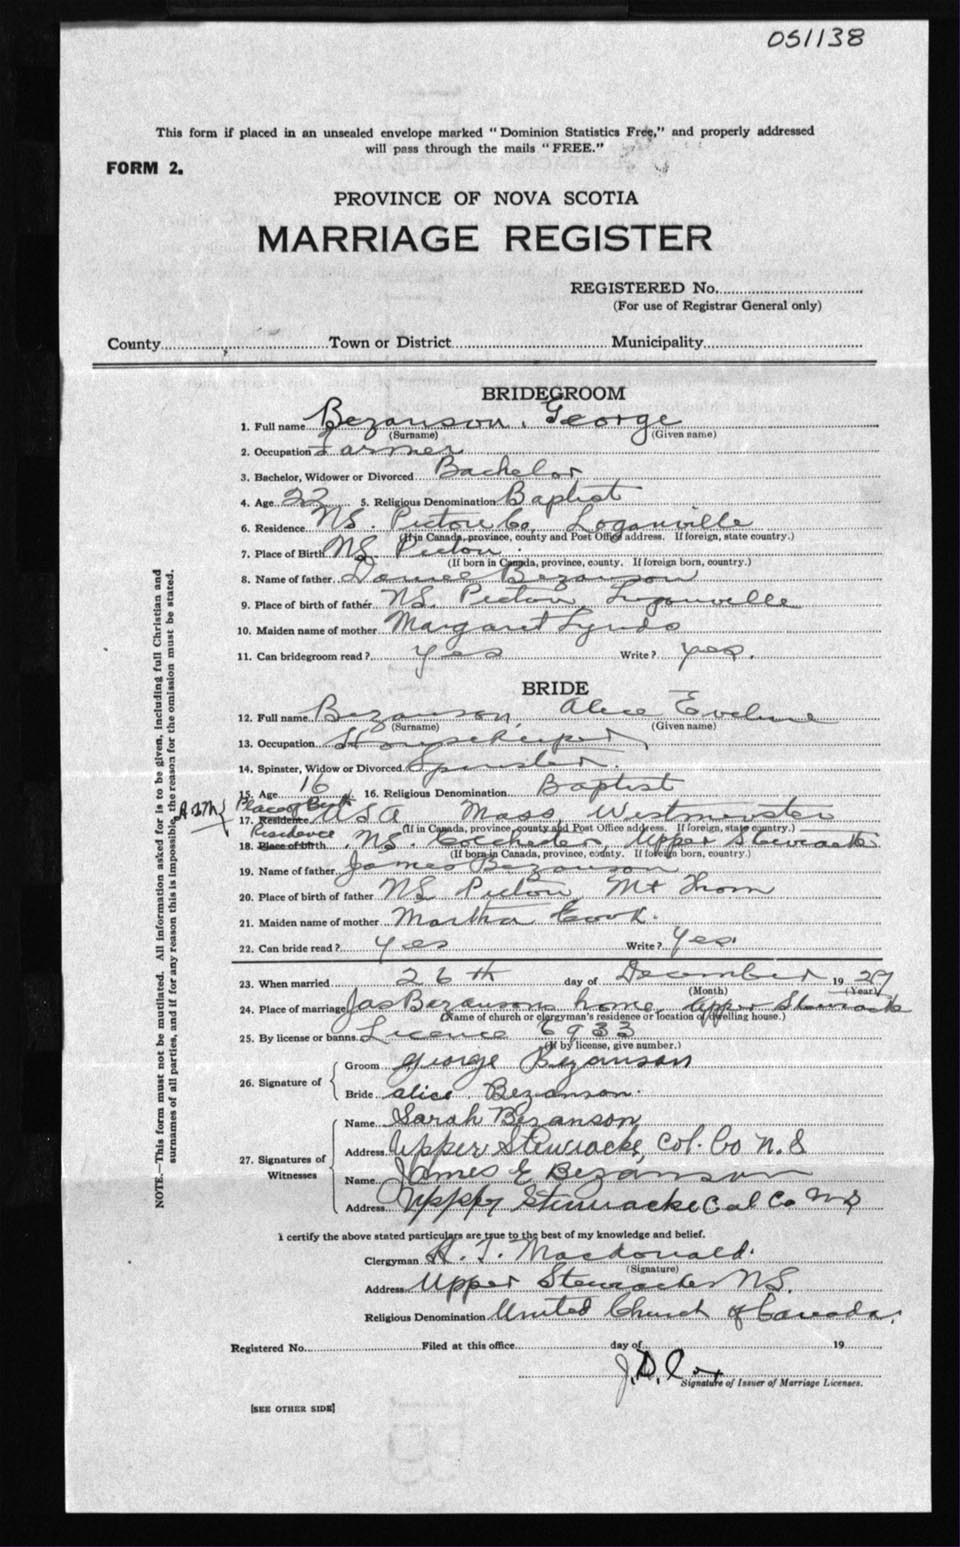 051138
This form if placed in an unsealed envelope marked "Dominion Statistics Free," and properly addressed
will pass through the mails "FREE."
FORM 2.
PROVINCE OF NOVA SCOTIA
MARRIAGE REGISTER
REGISTERED No.
(For use of Registrar General only)
County Town or District Municipality
BRIDEGROOM
1. Full name Bezanson, George
(Surname) (Given name)
2. Occupation Farmer
3. Bachelor, Widower or Divorced Bachelor
4. Age 22 5. Religious Denomination Baptist
6. Residence NS. Pictou Co, Loganville
(If in Canada, province, county and Post Office address. If foreign, state country.)
7. Place of Birth NS. Pictou
(If born in Canada, province, county. If foreign born, country.)
8. Name of father Bezanson
9. Place of birth of father NS. Pictou, Loganville
10. Maiden name of mother Margaret Lynds
11. Can bridegroom read? yes Write? yes.
BRIDE
12. Full name Bezanson, Alice Eveline
(Surname) (Given name)
13. Occupation Housekeeper
14. Spinster, Widow or Divorced Spinster.
15. Age 16 16. Religious Denomination Baptist
Place of Birth
17. Residence USA Mass, Westminster
(If in Canada, province, county and Post Office address. If foreign, state country.)
Residence
18. Place of birth NS. Colchester, Upper Stewiacke
(If born in Canada, province, county. If foreign born, country.)
19. Name of father James Bezanson
20. Place of birth of father NS Pictou, Mt Thom
21. Maiden name of mother Martha Cook.
22. Can bride read? Yes Write? Yes.
23. When married 26th day of December 1927
(Month) (Year)
24. Place of marriage Jas Bezansons home, Upper Stewiacke
(Name of church or clergyman's residence or location of dwelling house.)
25. By license or banns Licence 6933
(If by license, give number.)
26. Signature of
Groom George Bezanson
Bride Alice Bezanson.
27. Signatures of Witnesses
Name Sarah Bezanson
Address Upper Stewiacke, Col. Co N.S
Name James E Bezanson
Address Upper Stewiacke Col Co NS
I certify the above stated particulars are true to the best of my knowledge and belief.
Clergyman A. T. Macdonald.
(Signature)
Address Upper Stewiacke NS.
Religious Denomination United Church of Canada.
Registered No. Filed at this office day of 19
J.D. Cox
Signature of Issuer of Marriage Licenses.
[SEE OTHER SIDE]
NOTE.—This form must not be mutilated. All information asked for is to be given, including full Christian and
surnames of all parties, and if for any reason this is impossible, the reason for the omission must be stated.